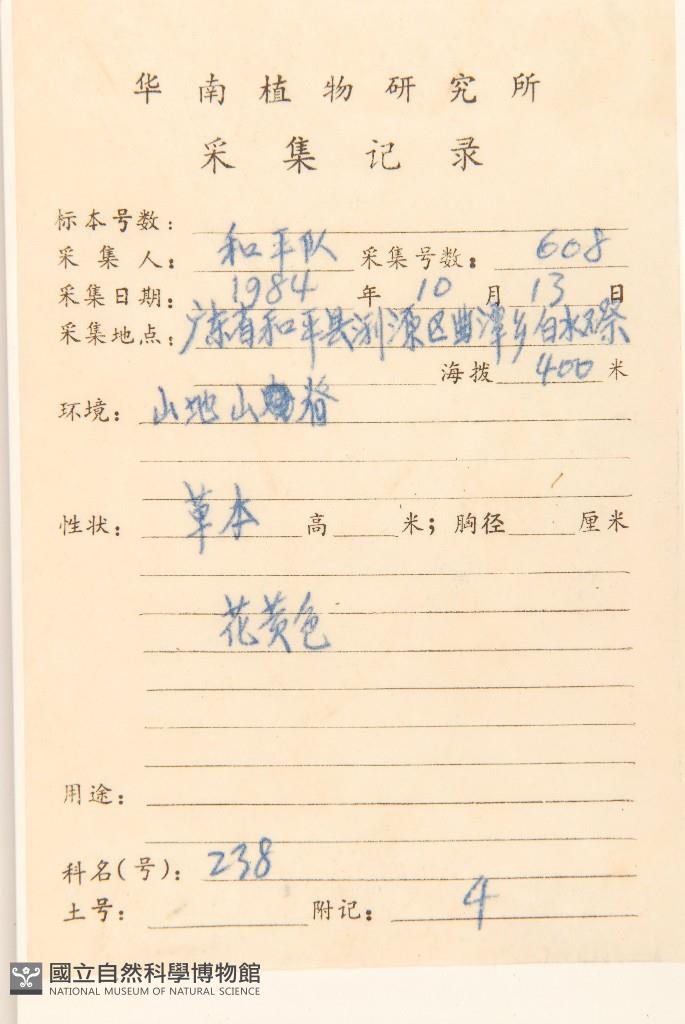 华南植物研究所
采集记录
标本号数：
采集人：和平队 采集号数：608
采集日期：1984年10月13日
采集地点：广东省和平县浰源区曲潭乡白水
海拨400米
环境：山地山脊
性状：草本 高 米；胸径 厘米
花黄色
用途：
科名(号)：238
土号： 附记：4
國立自然科學博物館
NATIONAL MUSEUM OF NATURAL SCIENCE